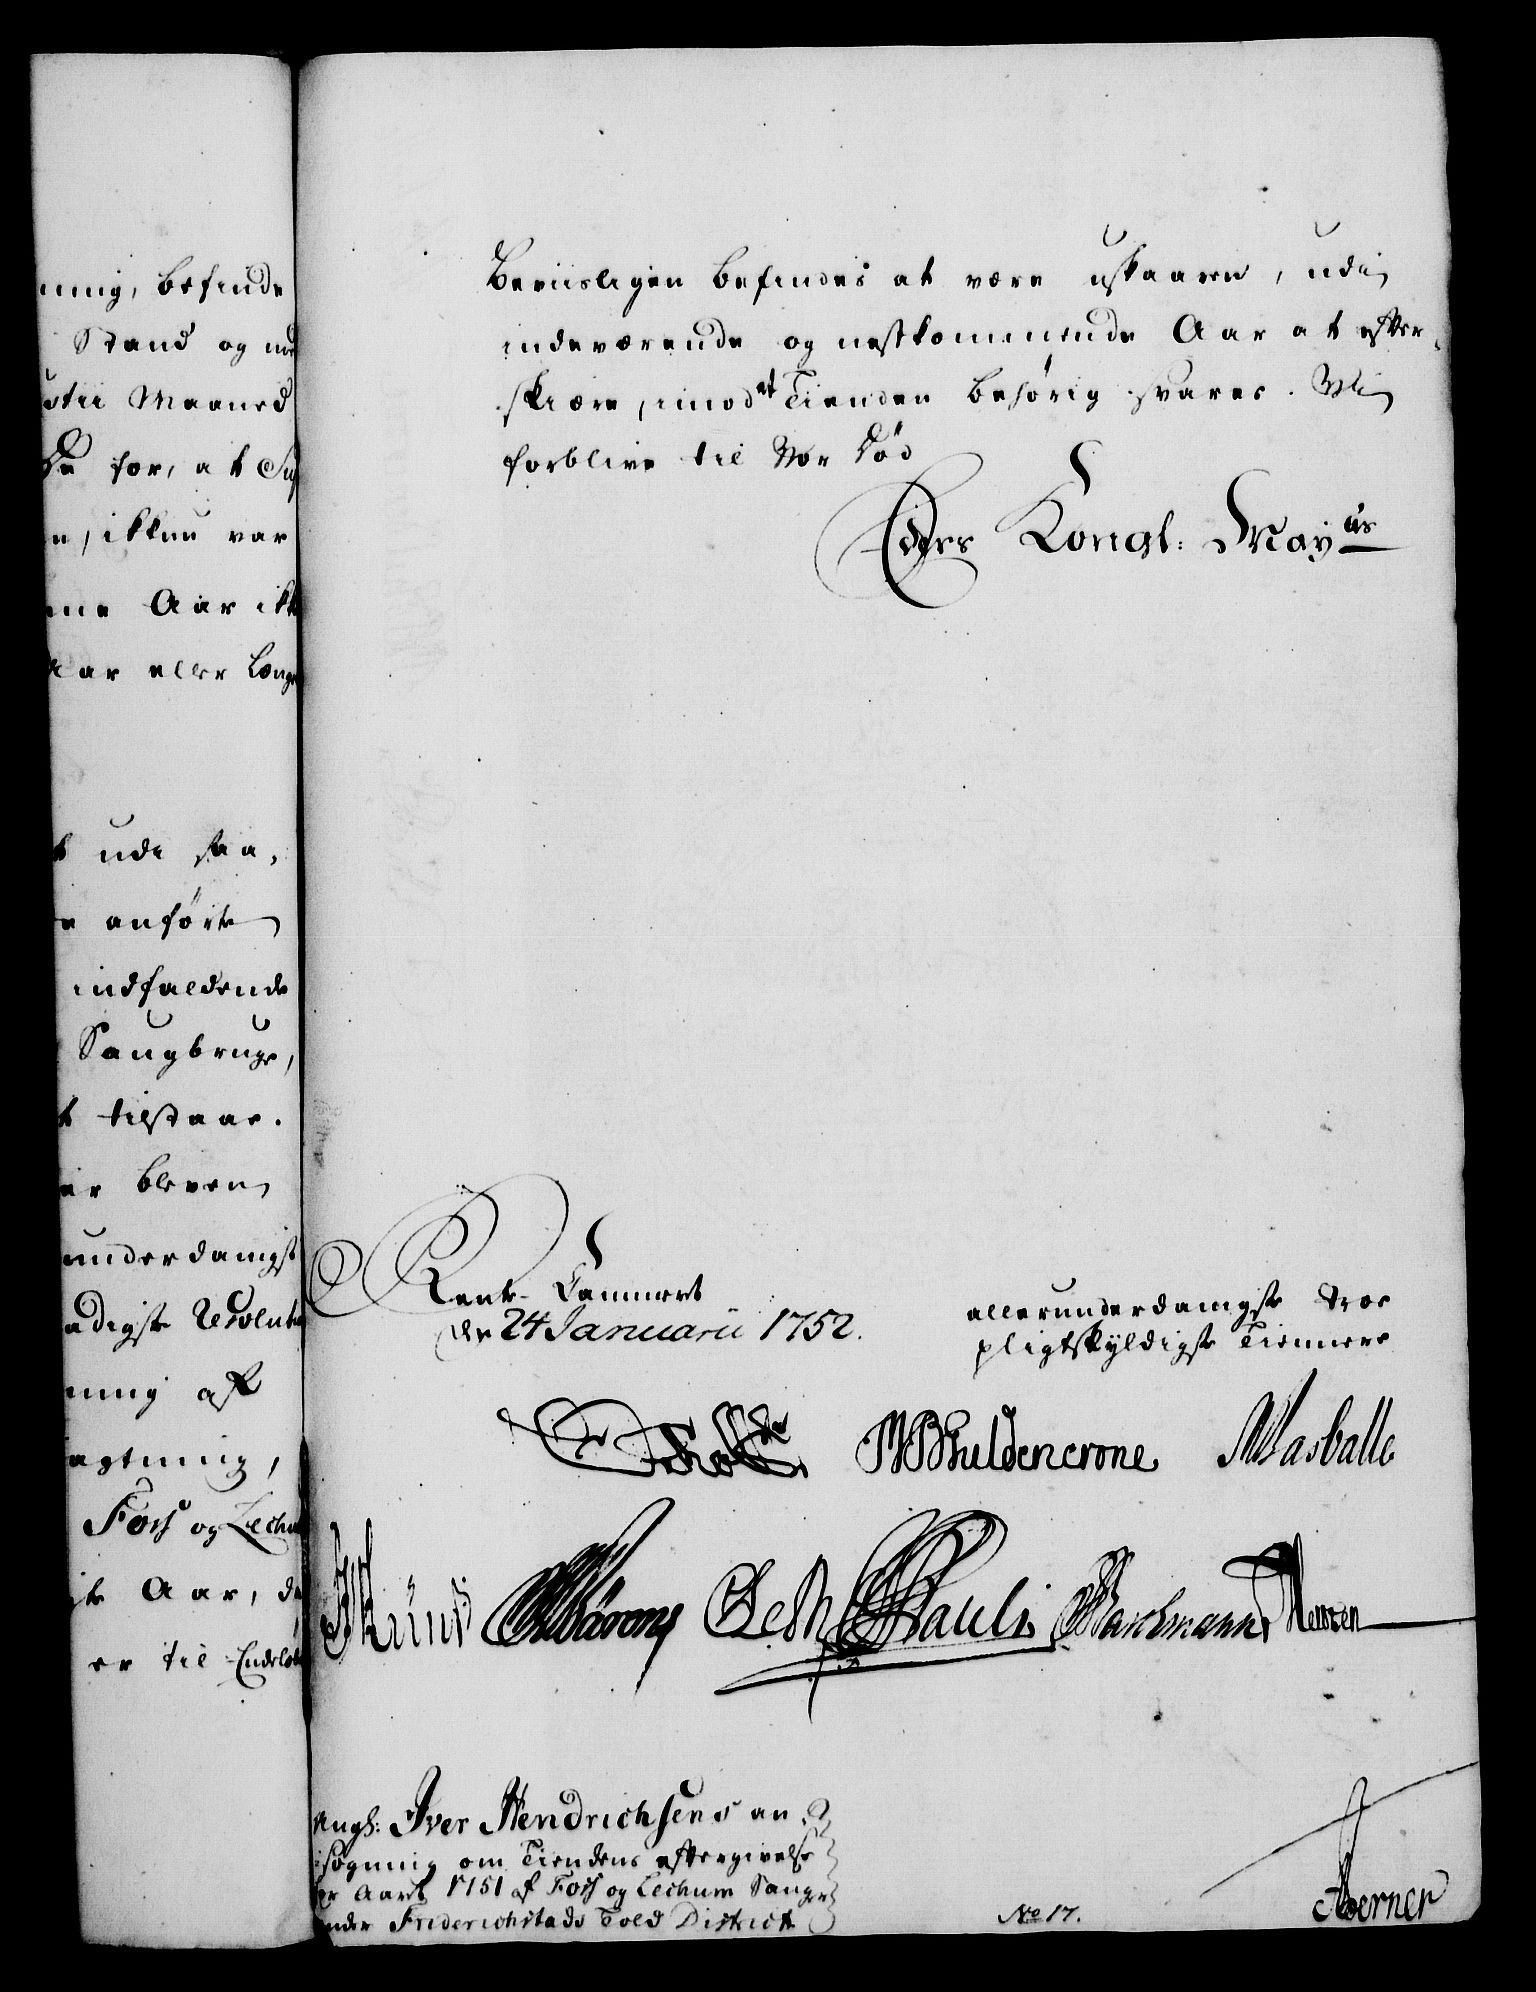 ning, befinde
Stand og med
ustii Maaned
for, at
n, ikkun var
ene Aar ikke
Aar eller Længe
t udi saa,
e anførte
indfaldende
Saugbruge,
t tilstaae.
er bleven
underdanigst
aadigste Resolution
ning af
agtning,
Foss og Lechum
te Aar, da
er til Endeløb
Beviisligen befindes at være uskaaren, udi
indeværende og nestkommende Aar at efter-
skiære, imod at Tienden behørig svares. Vi
forblive til Vor Død
Eders Kongl: May ts
Rente-Cammeret
den 24 Januarii 1752.
allerunderdanigste troe
pligtskyldigste Tiennere
Holst MBGuldencrone Wasballe
Pauli Marchmann Hensen
Angh: Iver Hendrichsens an
søgning om Tiendens eftergivelse
for Aaret 1751 af Foss og Lechum Sauge
under Friderichstads Told District
No 17.
Koerner